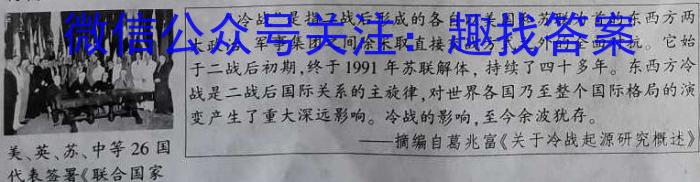 微信公众号关注：趣找答案
冷战是指二战后形成的各自以美国和苏联为首的东西方两
军事集团之间除采取直接
外的全面对抗。它始
于二战后初期，终于1991年苏联解体，持续了四十多年。东西方冷
战是二战后国际关系的主旋律，对世界各国乃至整个国际格局的演
变产生了重大深远影响。冷战的影响，至今余波犹存。
——摘编自葛兆富《关于冷战起源研究概述》
美、英、苏、中等26国
代表签署《联合国家